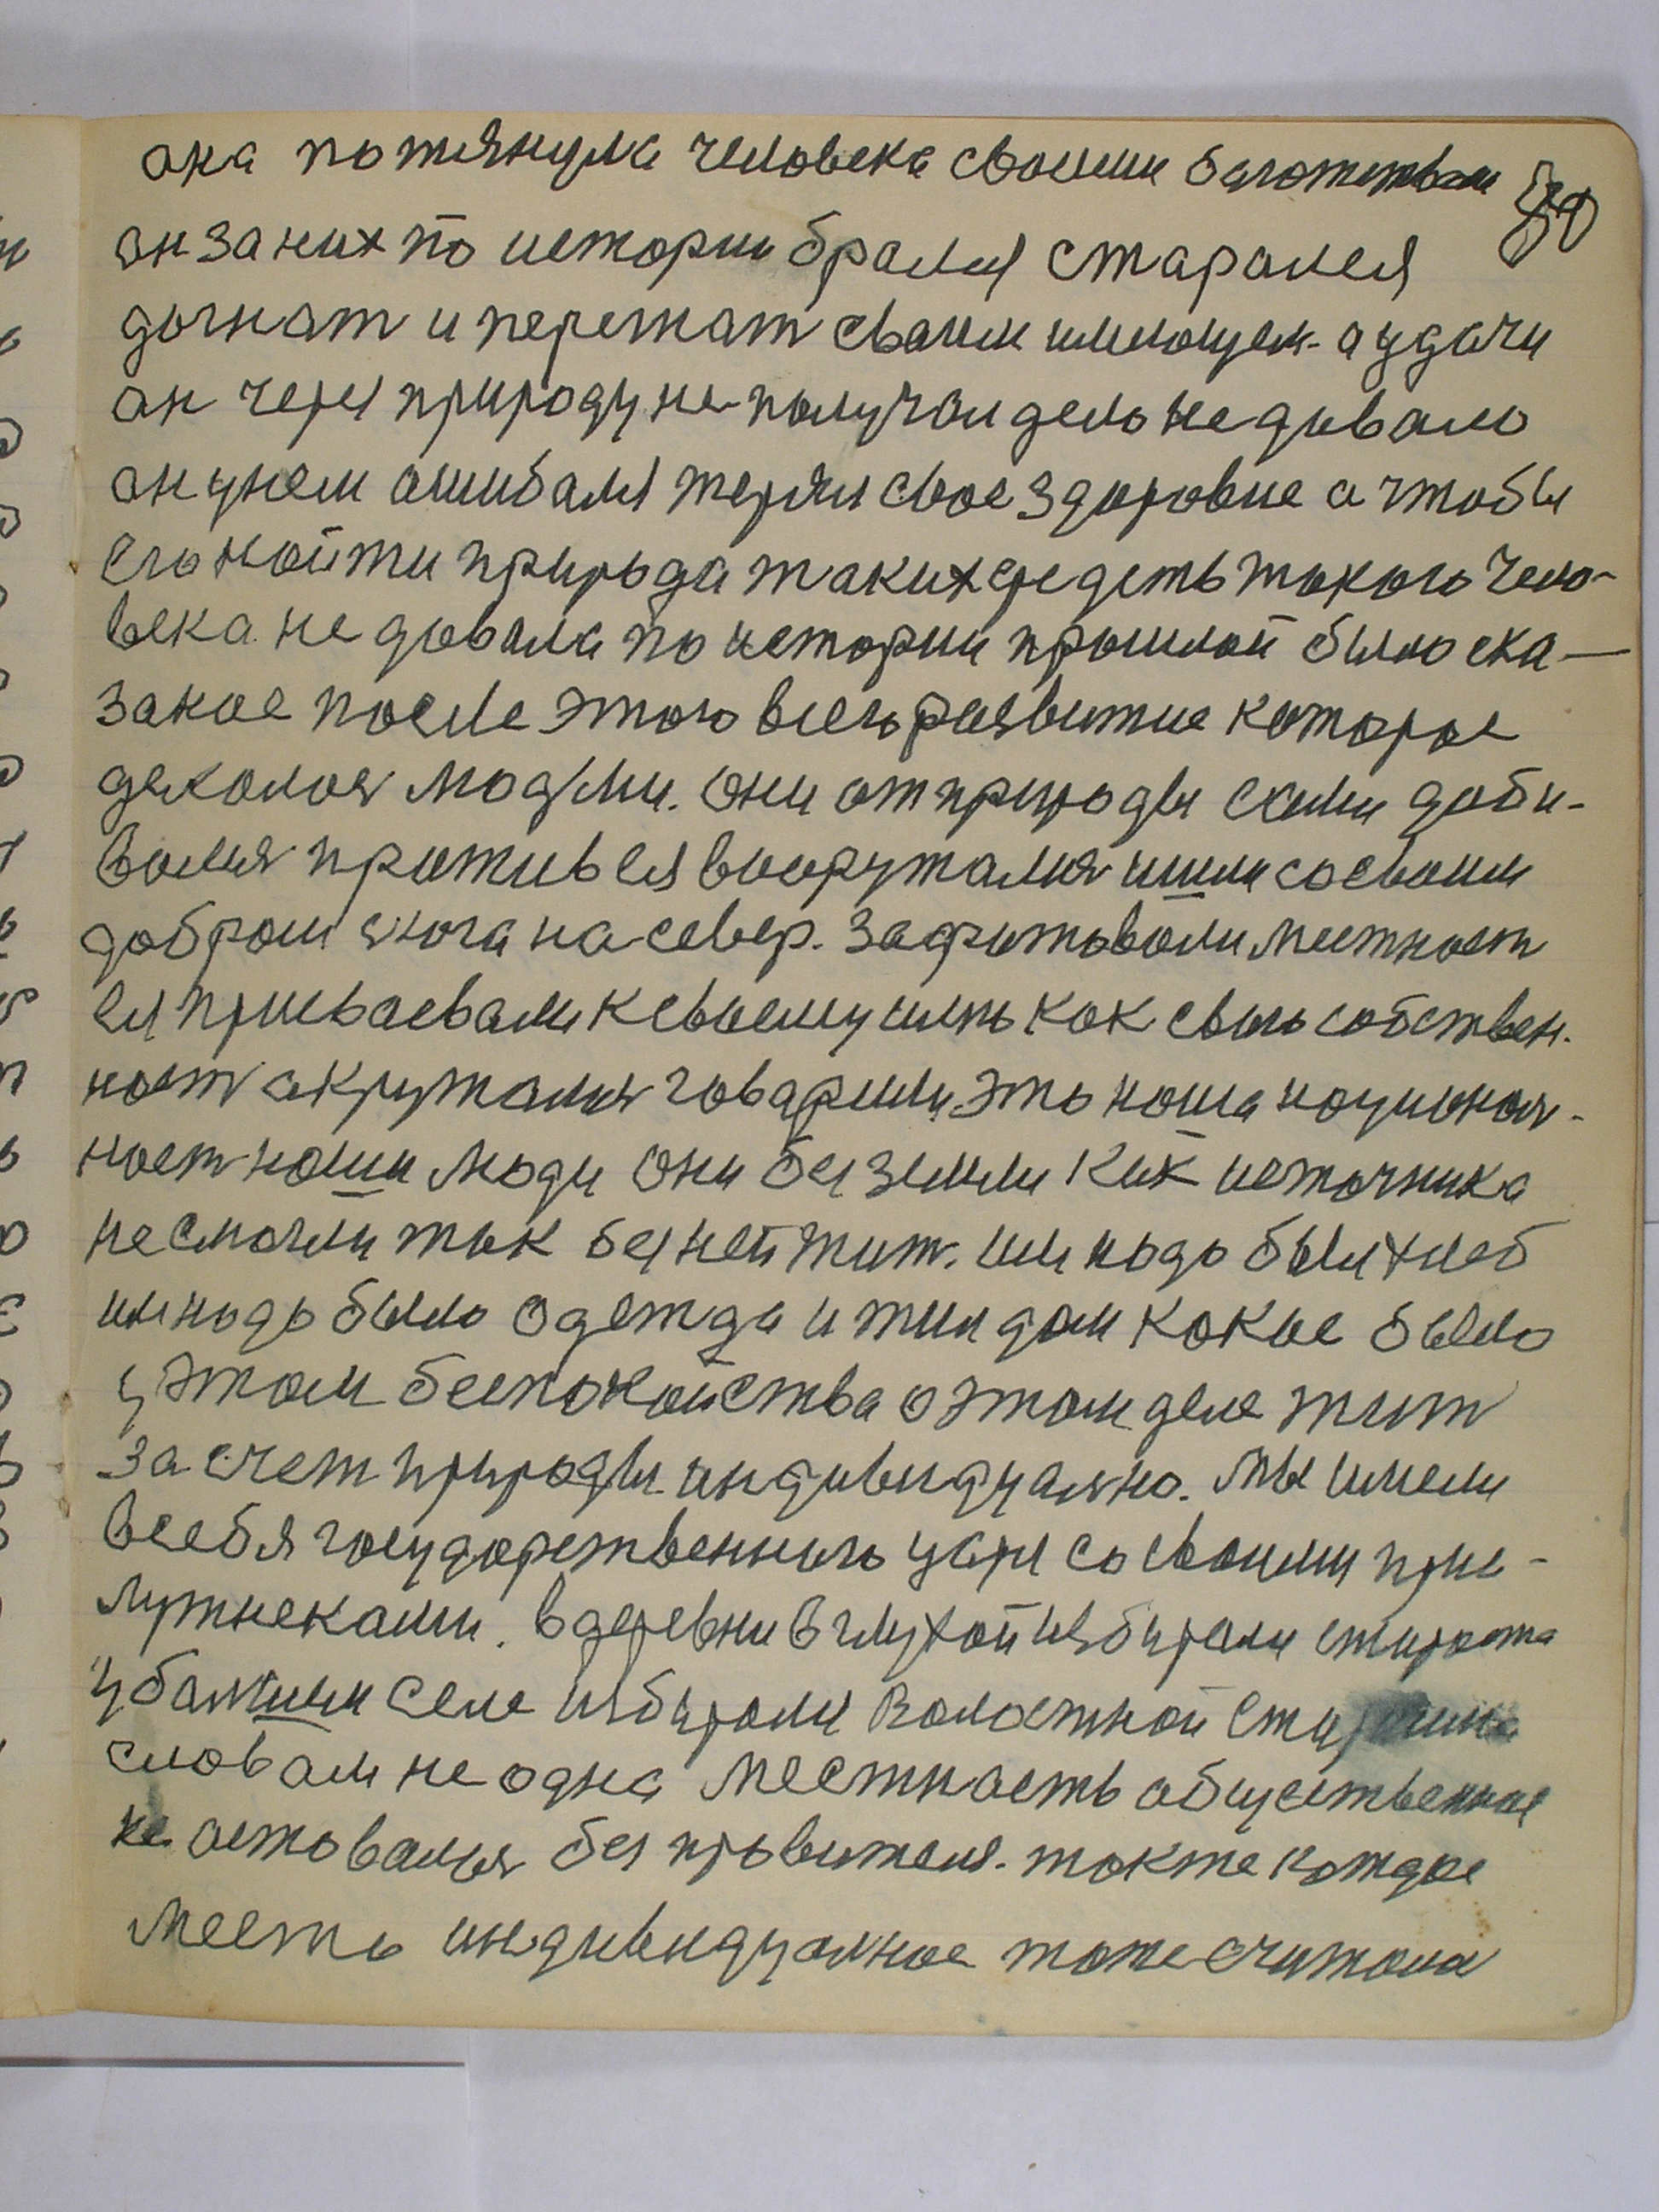 она потянула человека своими багатствам
он за них по истории брался старался
догнат и пережат своим имеющем. а удачи
он через природу не получал дело не давало
он у нем ошибался терял свое здоровие а чтобы
его найти природа таких средств такого чело-
века не давала по истории прошлой было ска-
заное после этого всего развитие которое
делалося людями. они от природы сами доби-
валися против ея вооружалися шли со своим
добром с юга на север. зафртовали местност
ея присваевали к своему имю как свою собствен-
ност окружалися говарили это наша национал-
ност наши люди они без земли как источника
не смогли так без ней жит. им надо был хлеб
им надо было одежда и жил дом какое было
у этом беспокойства о этом деле жит
за счет природы индивидуално. мы имели
в себя государственного царя со своими при-
лужнеками. в деревни в глухой избирали старосте
у большим селе избирали волостной старшина
словам не одна местность общественное
не оставалися без правителя. также каждое
место индивидуалное тоже считалоя